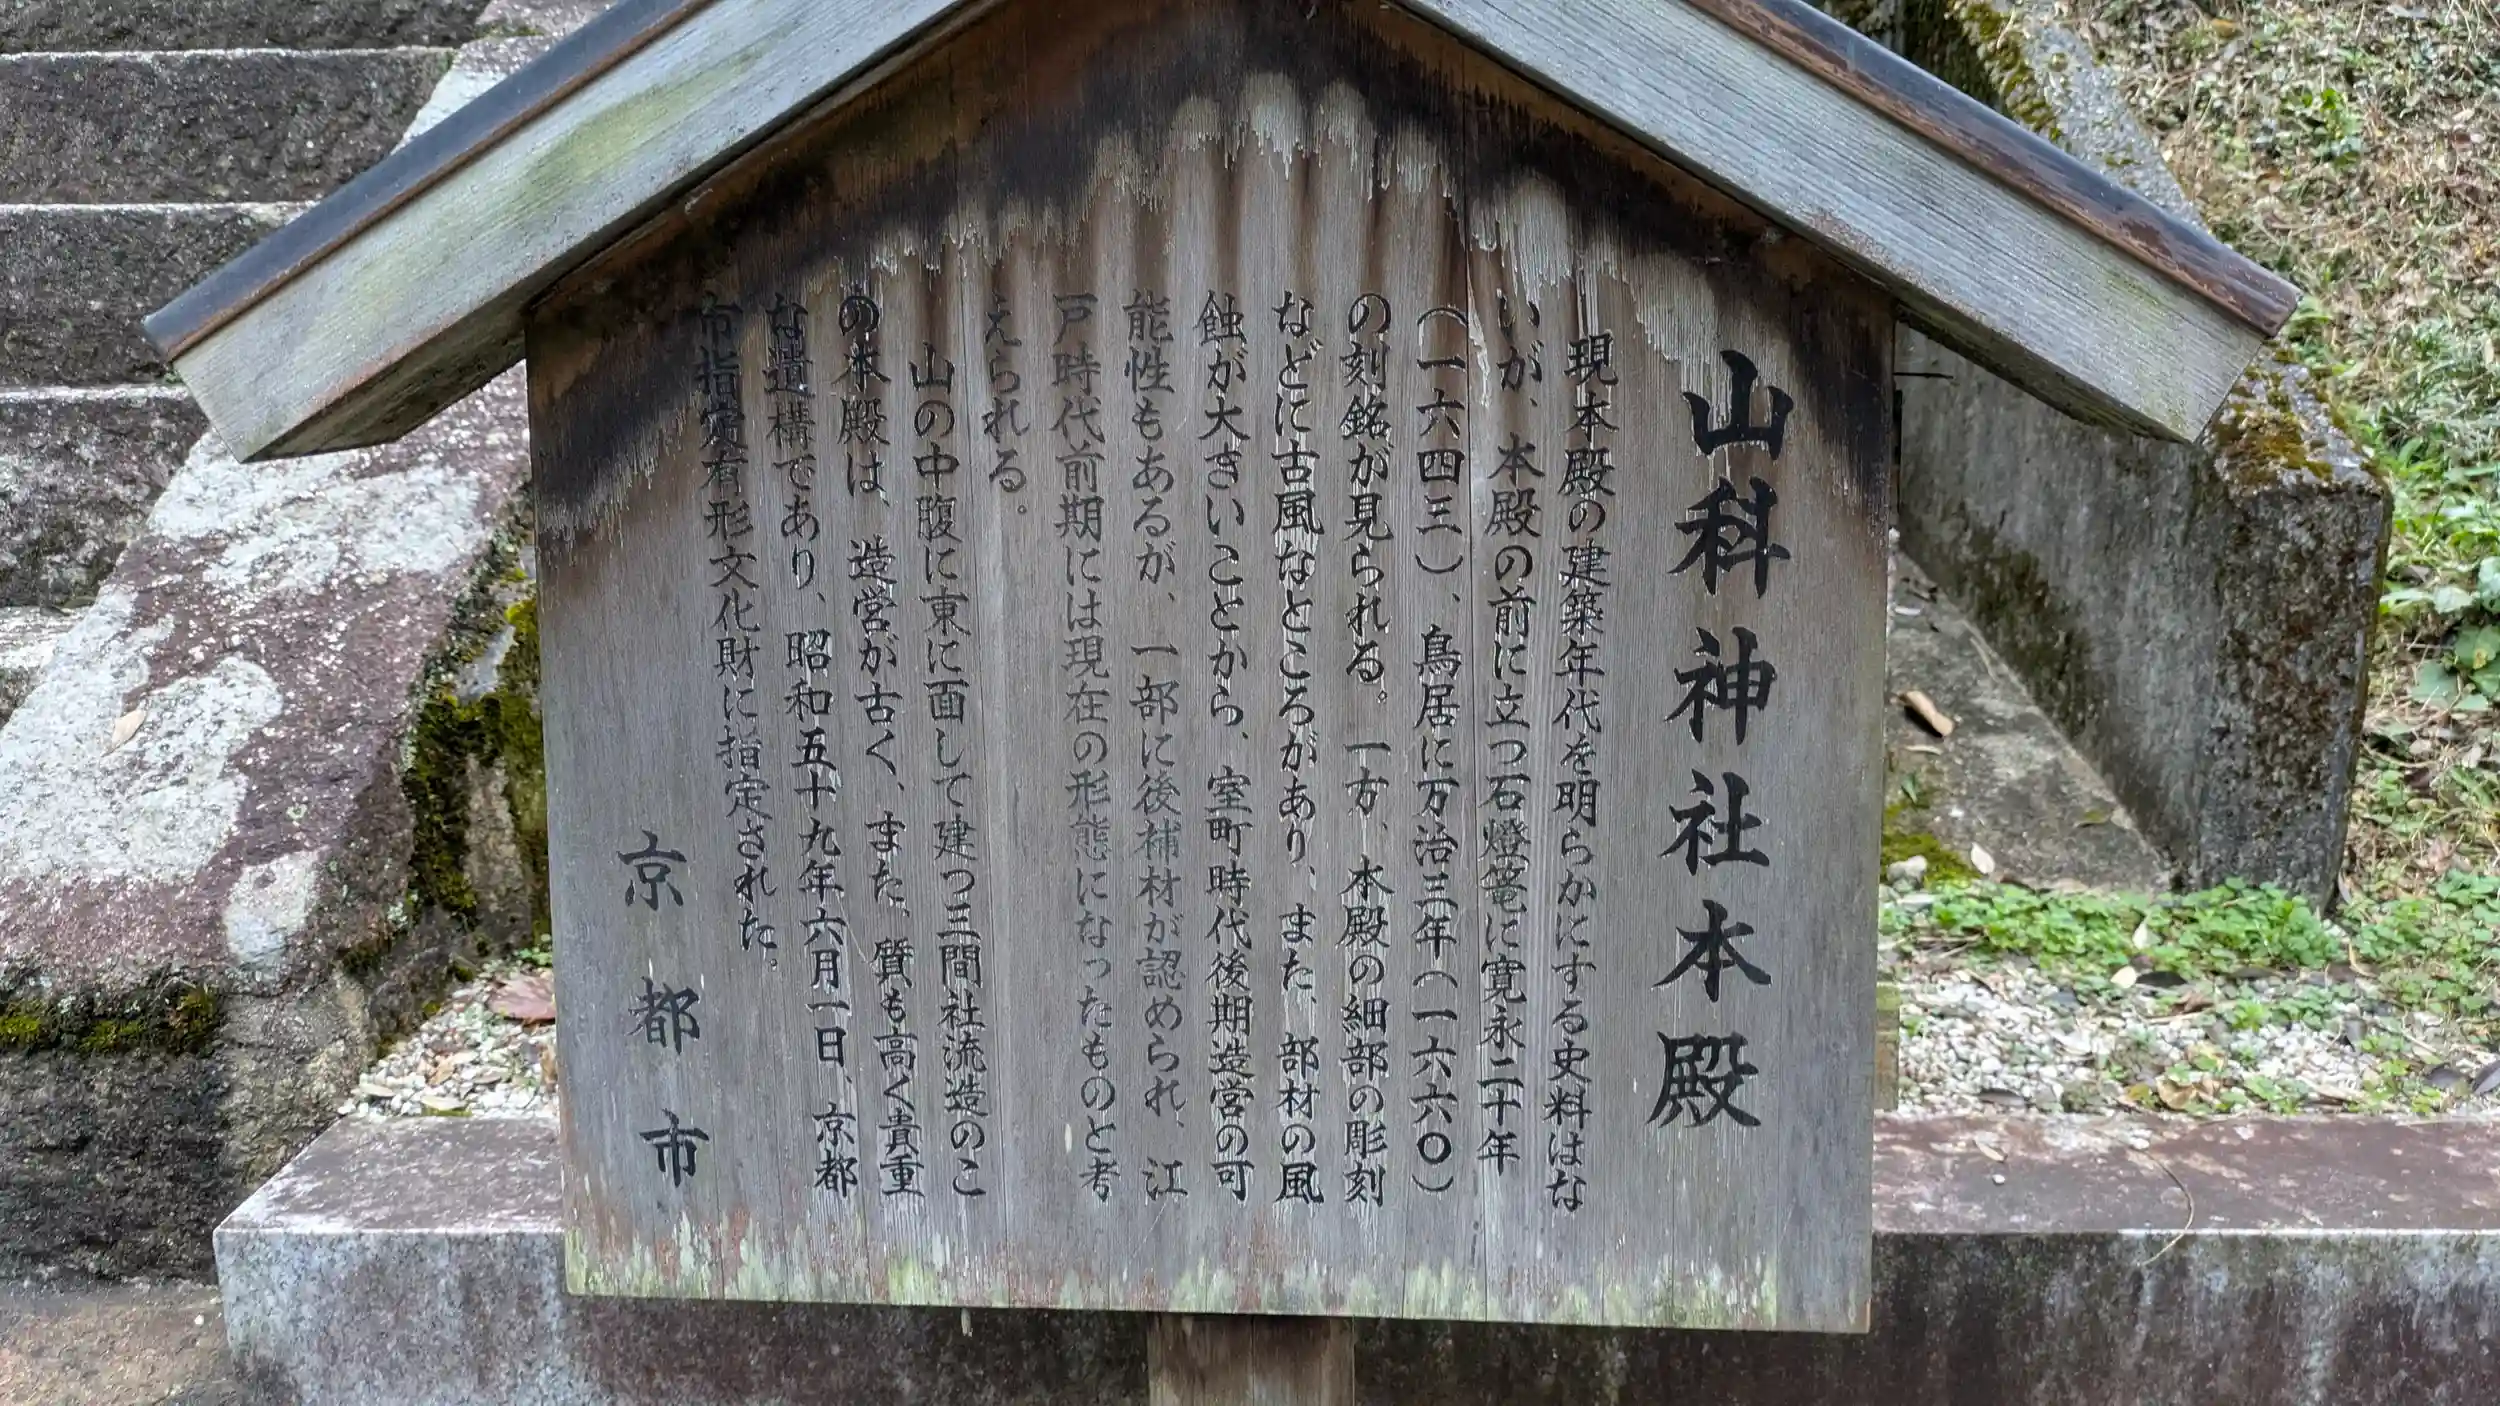 山科神社本殿
現本殿の建築年代を明らかにする史料はな
いが、本殿の前に立つ石燈篭に寛永二十年
（一六四三）、鳥居に万治三年（一六六〇）
の刻銘が見られる。一方、本殿の細部の彫刻
などに古風なところがあり、また、部材の風
蝕が大きいことから、室町時代後期造営の可
能性もあるが、一部に後補材が認められ、江
戸時代前期には現在の形態になったものと考
えられる。
山の中腹に東に面して建つ三間社流造のこ
の本殿は、造営が古く、また、質も高く貴重
な遺構であり、昭和五十九年六月一日、京都
市指定有形文化財に指定された。
京都市